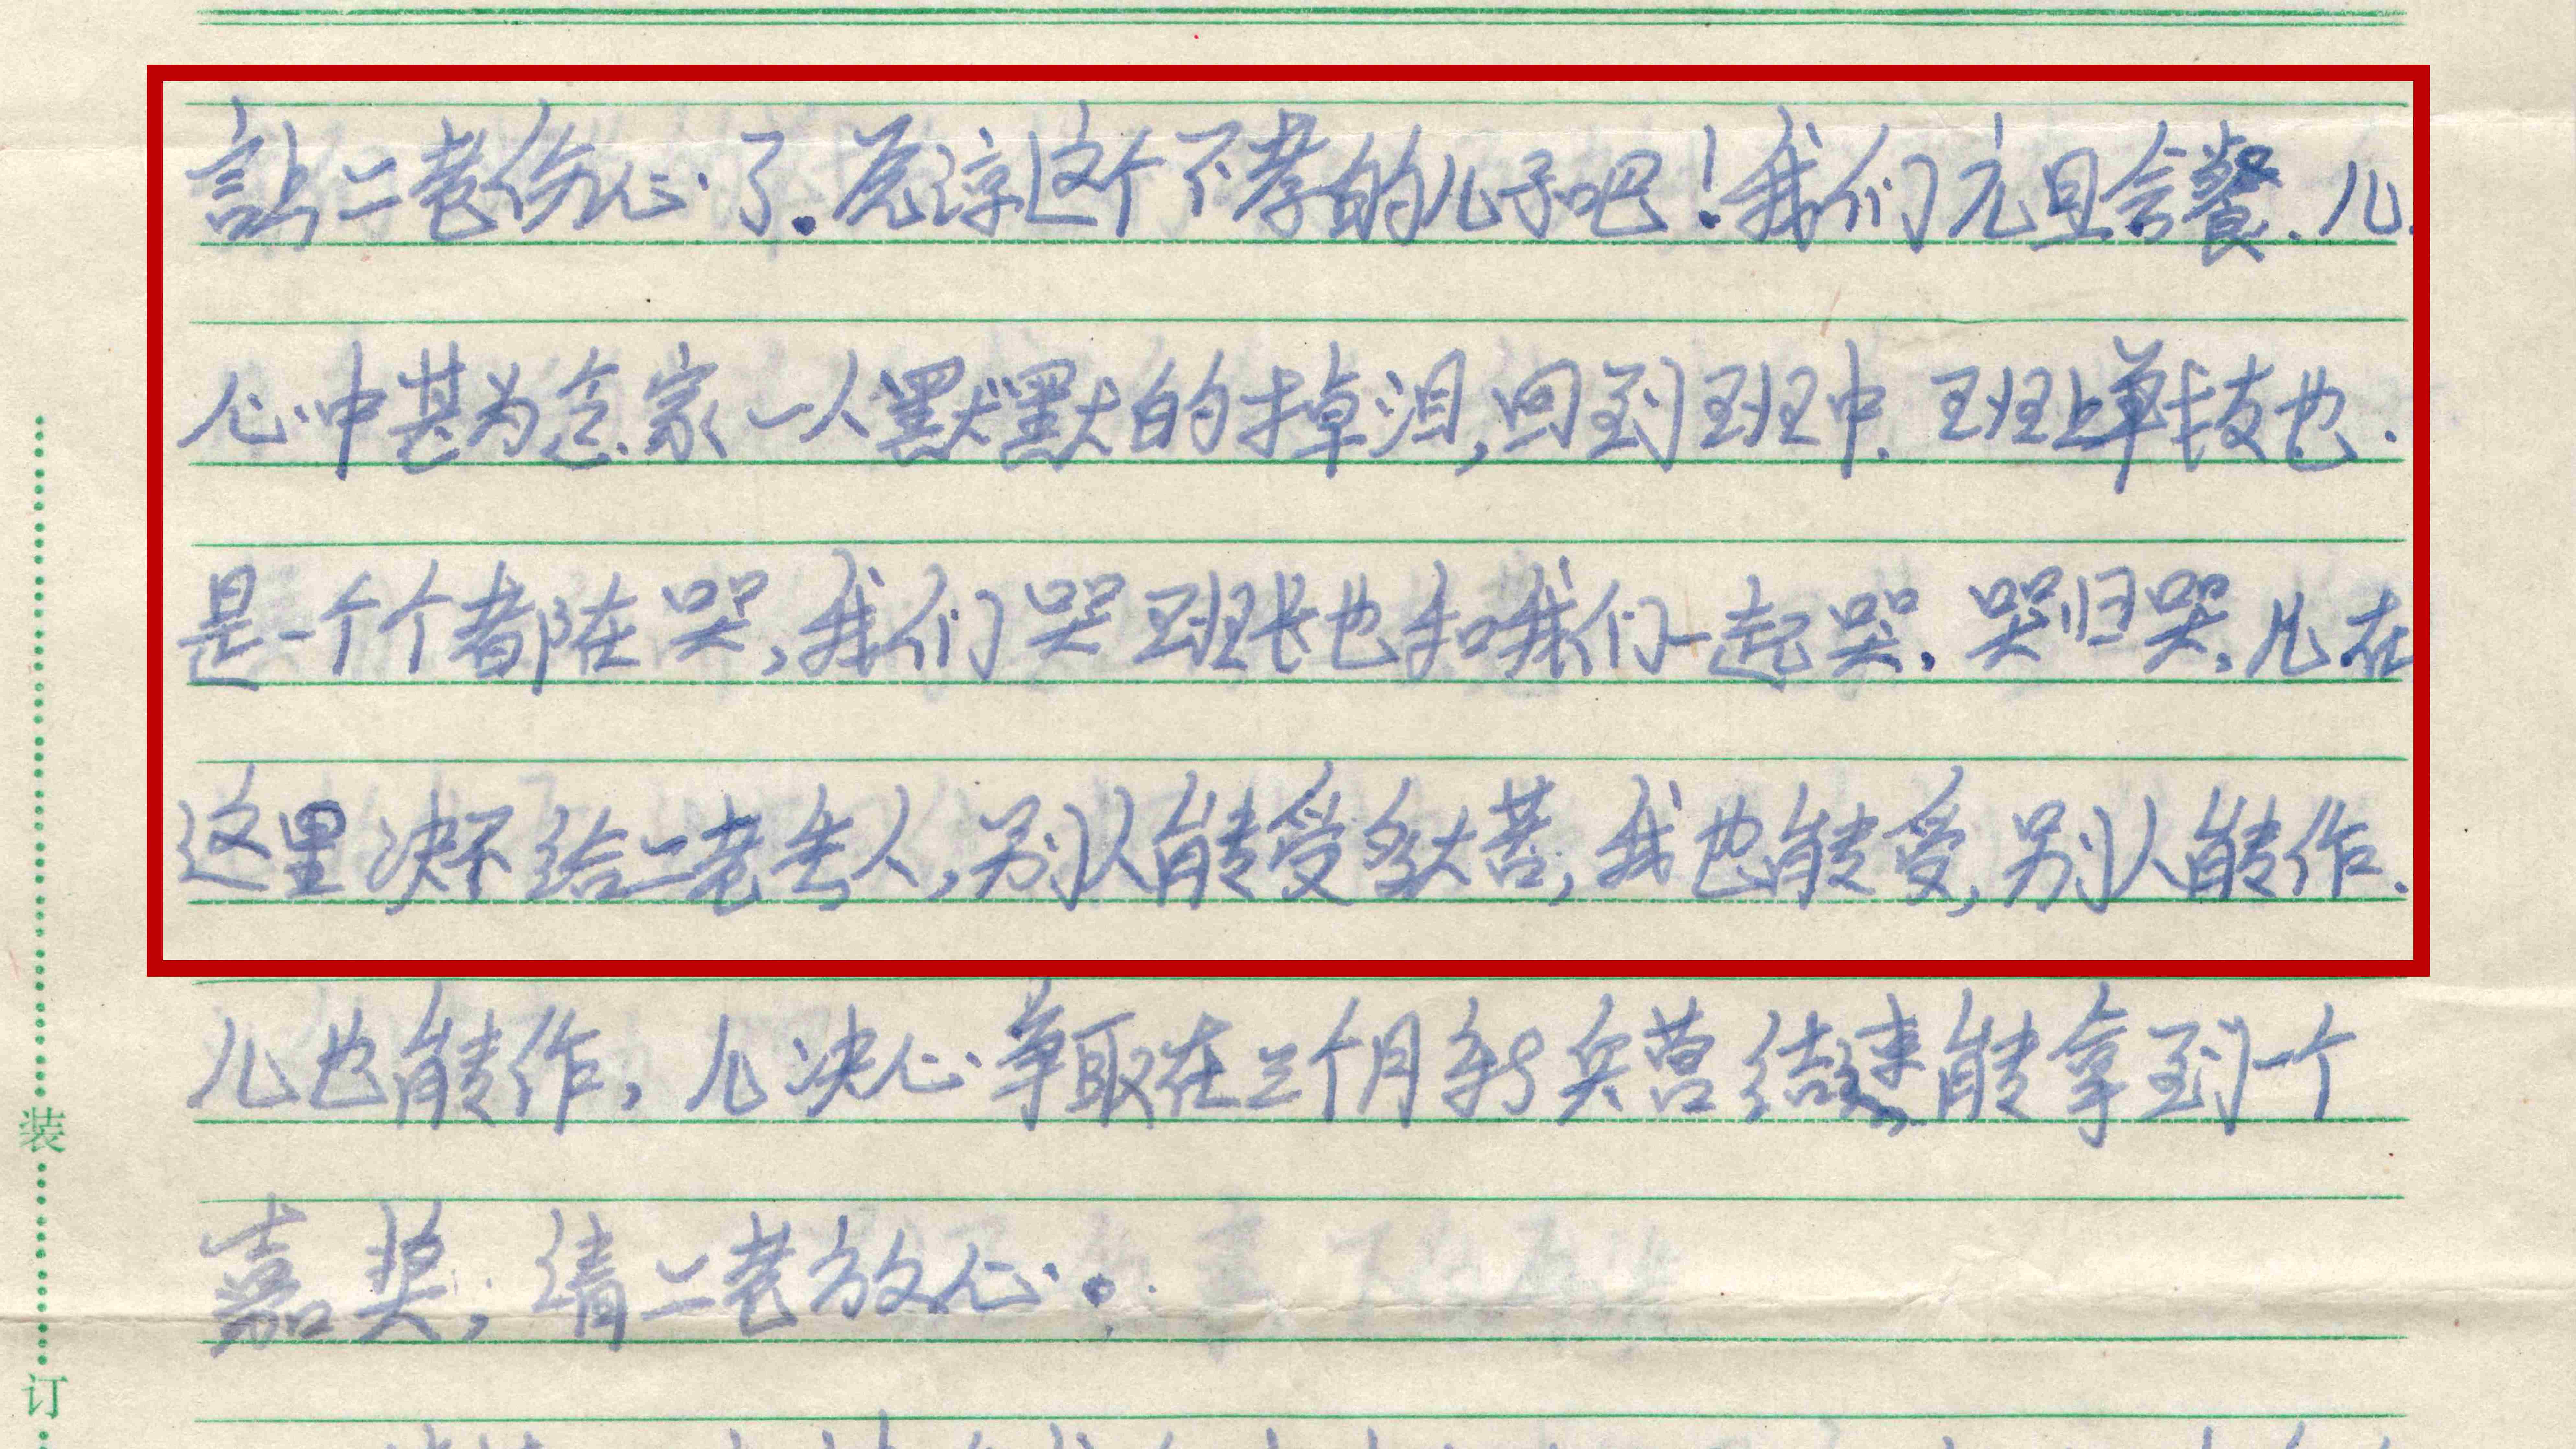 让二老伤心了.原谅这个不孝的儿子吧!我们元旦会餐.儿.
心中甚为念家一人默默的掉泪,回到班中.班上单技也.
是一个个都在哭,我们哭班长也和我们一起哭.哭归哭,儿在
这里决不给二老丢人,别人能受多大苦,我也能受,别人能作.
儿也能作,儿决心争取在三个月新兵营结速能拿到一个
嘉奖,请二老放心。
装
订